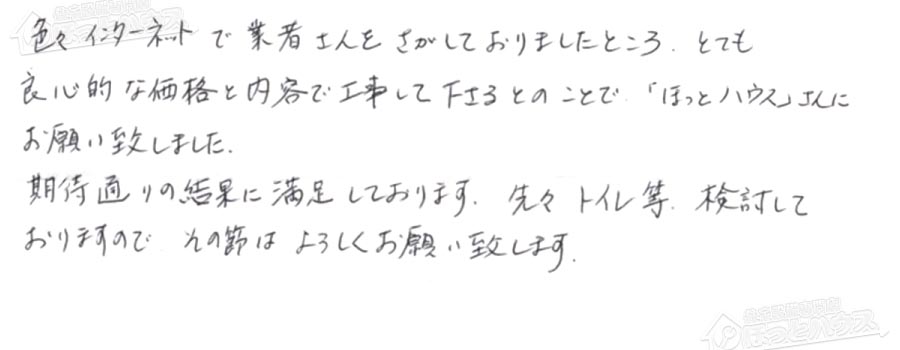 色々インターネットで業者さんをさがしておりましたところ、とても
良心的な価格と内容で工事して下さるとのことで、「ほっとハウス」さんに
お願い致しました。
期待通りの結果に満足しております。先々トイレ等、検討して
おりますので、その節はよろしくお願い致します。
ほっとハウス